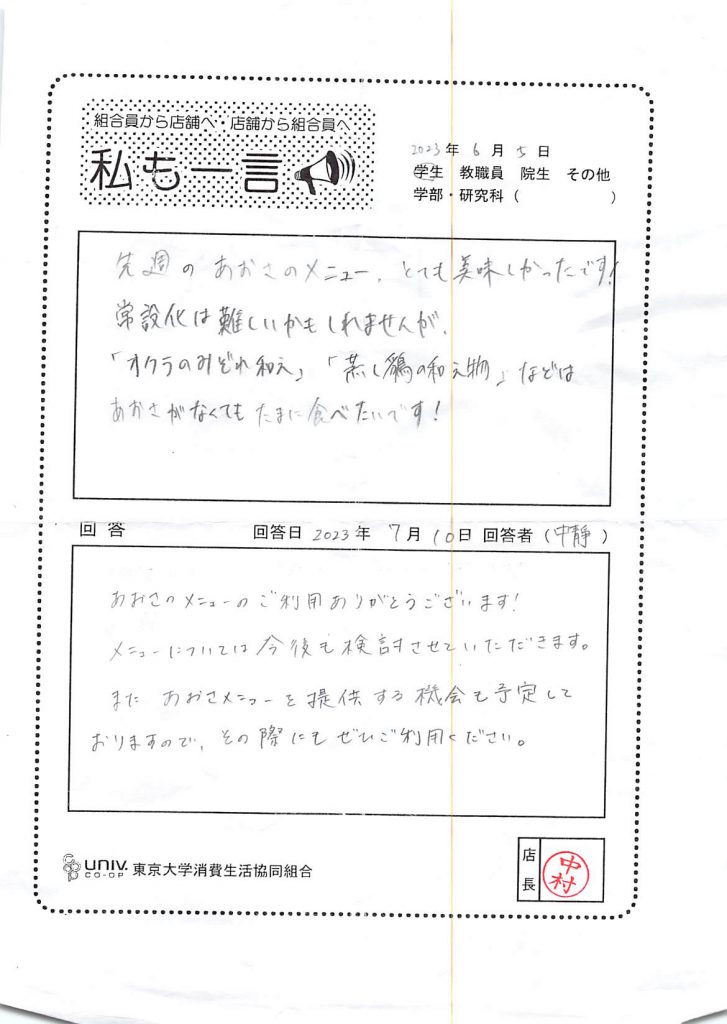 組合員から店舗へ・店舗から組合員へ
私も一言
2023年 6月 5日
学生 教職員 院生 その他
学部・研究科（ ）
先週の あおさのメニュー、とても美味しかったです!
常設化は難しいかもしれませんが、
「オクラのみぞれ和え」「蒸し鶏の和え物」などは
あおさがなくても たまに食べたいです!
回答 回答日 2023年 7月 10日 回答者（中静）
あおさのメニューのご利用ありがとうございます!
メニューについては今後も検討させていただきます。
また あおさメニューを提供する機会も予定して
おりますので、その際にもぜひご利用ください。
UNIV. CO-OP 東京大学消費生活協同組合
店長 中村